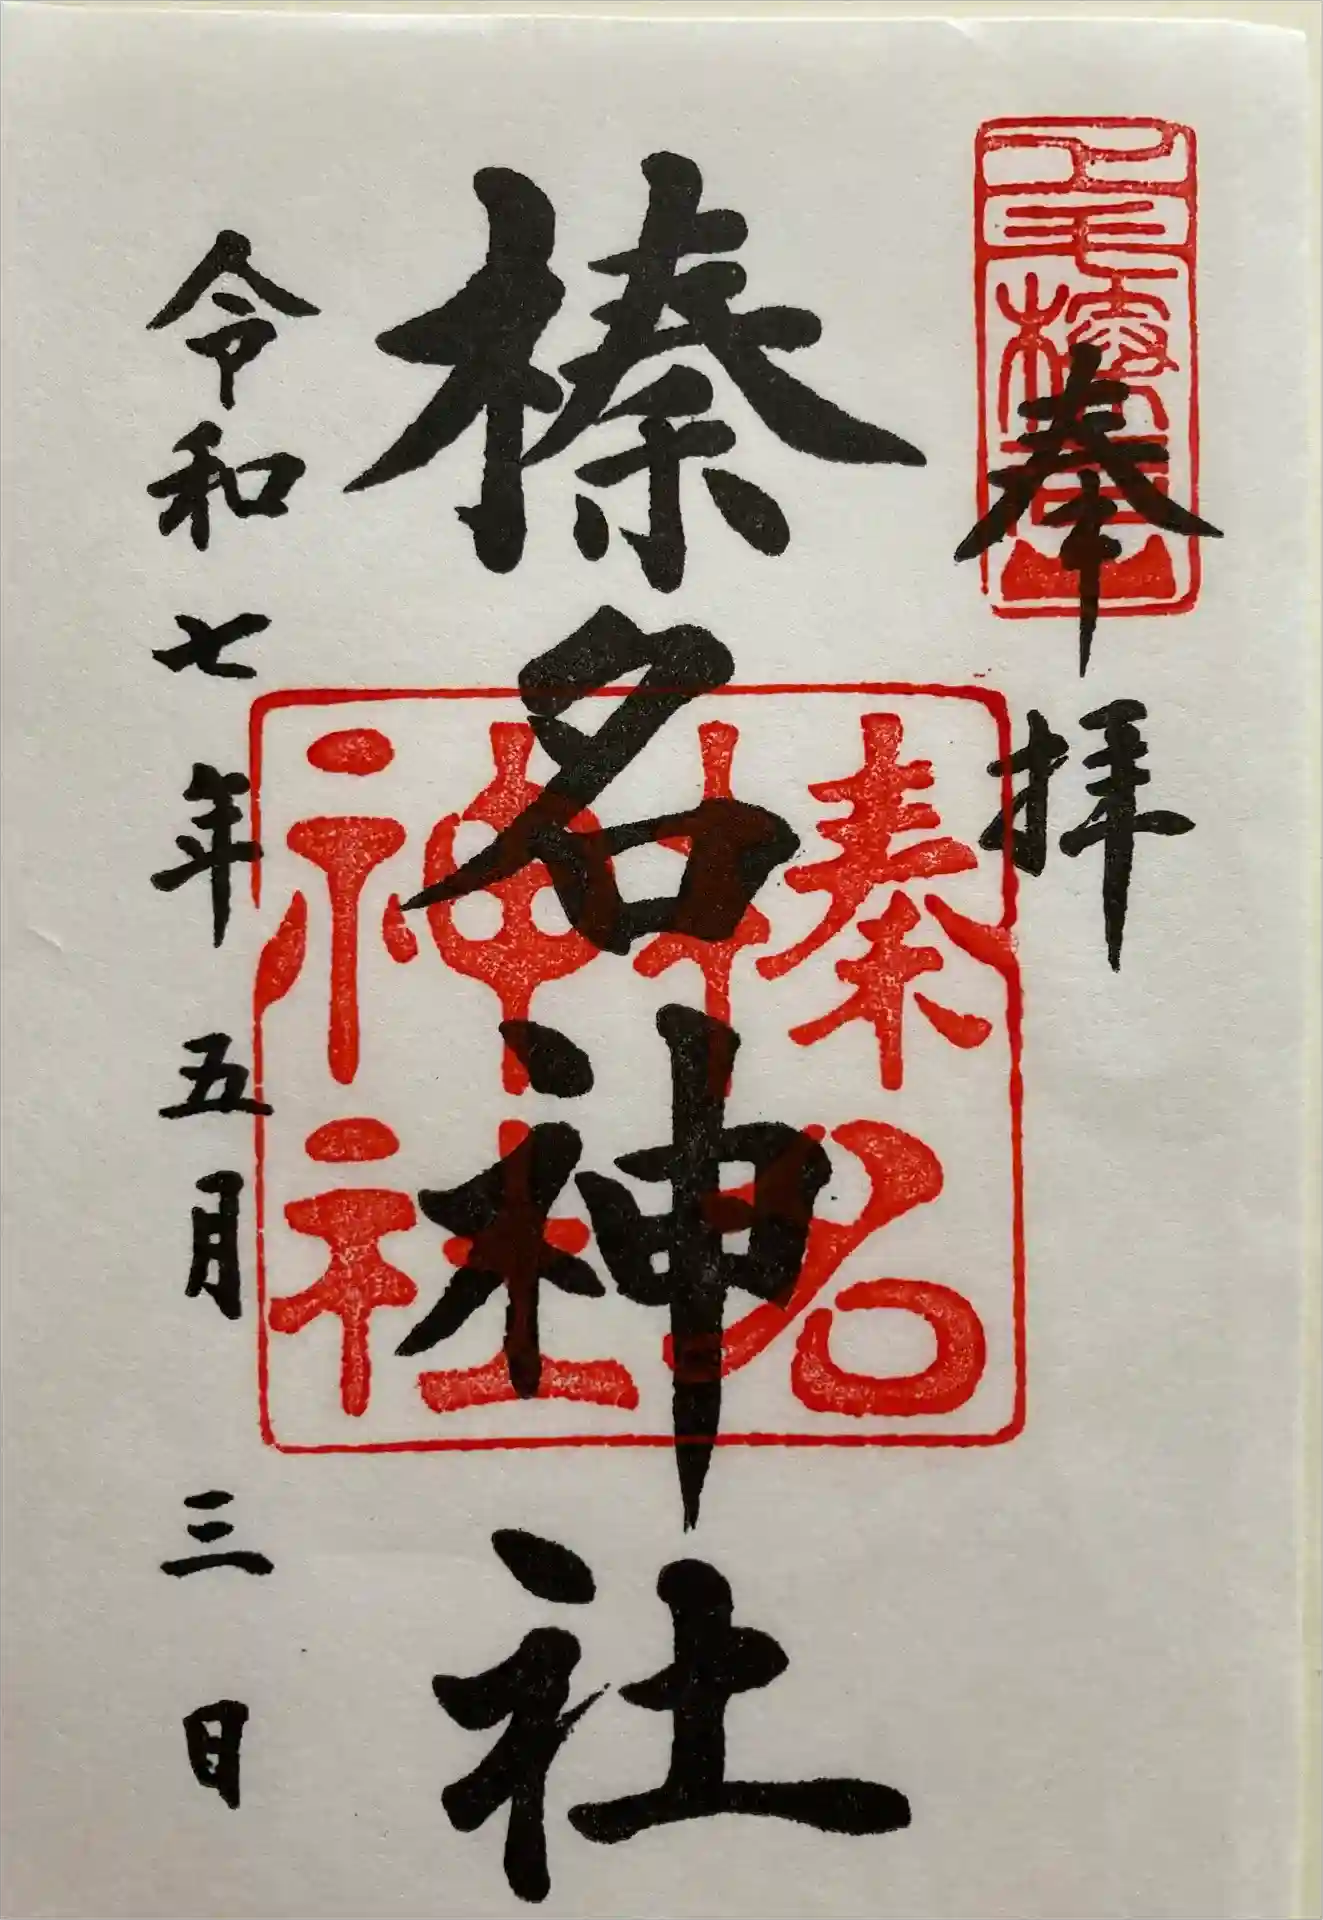 奉拝
榛名神社
令和七年五月三日
榛名神社